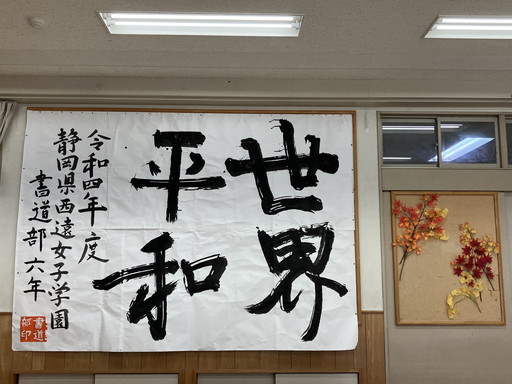 世界
平和
令和四年度
静岡県西遠女子学園
書道部六年
書道
部印